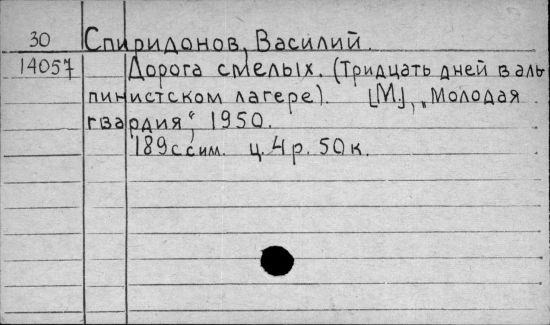 30 Спиридонов, Василий.
14057 Дорога смелых. (Тридцать дней в аль
пинистском лагере). [М.], „Молодая
гвардия“, 1950.
189 с с им. ц. 4 р. 50 к.